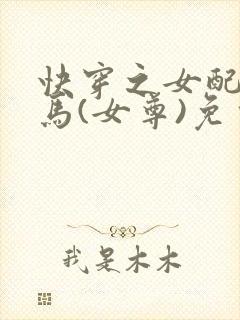 快穿之女配
马(女尊)免
我是木木